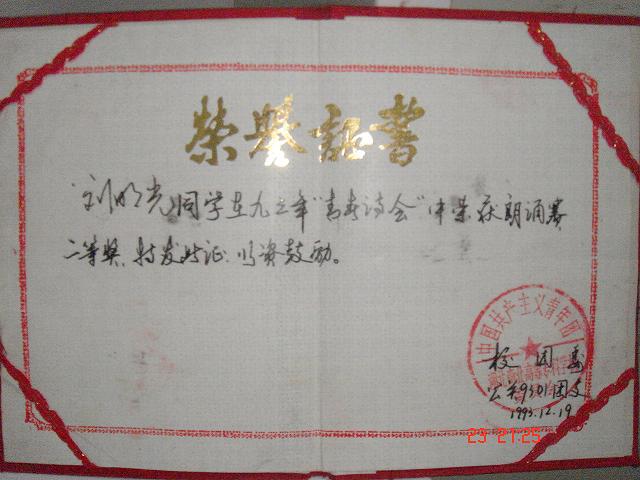 荣誉证书
刘明光同学在九三年"青春诗会"中荣获朗诵赛
二等奖、特发此证、以资鼓励。
中国共产主义青年团
校团委
公关9301团支
1993.12.19
23 21:25